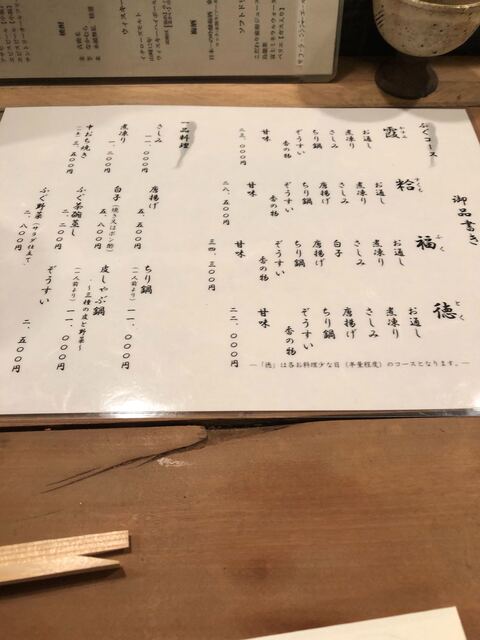 御品書き
ふくコース
霞
お通し
煮凍り
さしみ
ちり鍋
ぞうすい
香の物
甘味
二三、〇〇〇円
粭
お通し
煮凍り
さしみ
唐揚げ
ちり鍋
ぞうすい
香の物
甘味
二八、五〇〇円
福
ふく
お通し
煮凍り
さしみ
白子
唐揚げ
ちり鍋
ぞうすい
香の物
甘味
三四、三〇〇円
徳
とく
お通し
煮凍り
さしみ
唐揚げ
ちり鍋
ぞうすい
香の物
甘味
二二、〇〇〇円
―「徳」は各お料理少な目（半量程度）のコースとなります。―
一品料理
さしみ
一一、〇〇〇円
煮凍り
一、二〇〇円
中おち焼き
三、五〇〇円
唐揚げ
五、五〇〇円
白子（焼き又はポン酢）
五、八〇〇円
ふぐ茶碗蒸し
二、二〇〇円
ふぐ野菜（サラダ仕立て）
二、八〇〇円
ちり鍋
（二人前より）
一一、〇〇〇円
皮しゃぶ鍋
～三種の皮と野菜～
（二人前より）
一一、〇〇〇円
ぞうすい
二、五〇〇円
焼酎
ウィスキー
梅酒
ソフトドリ